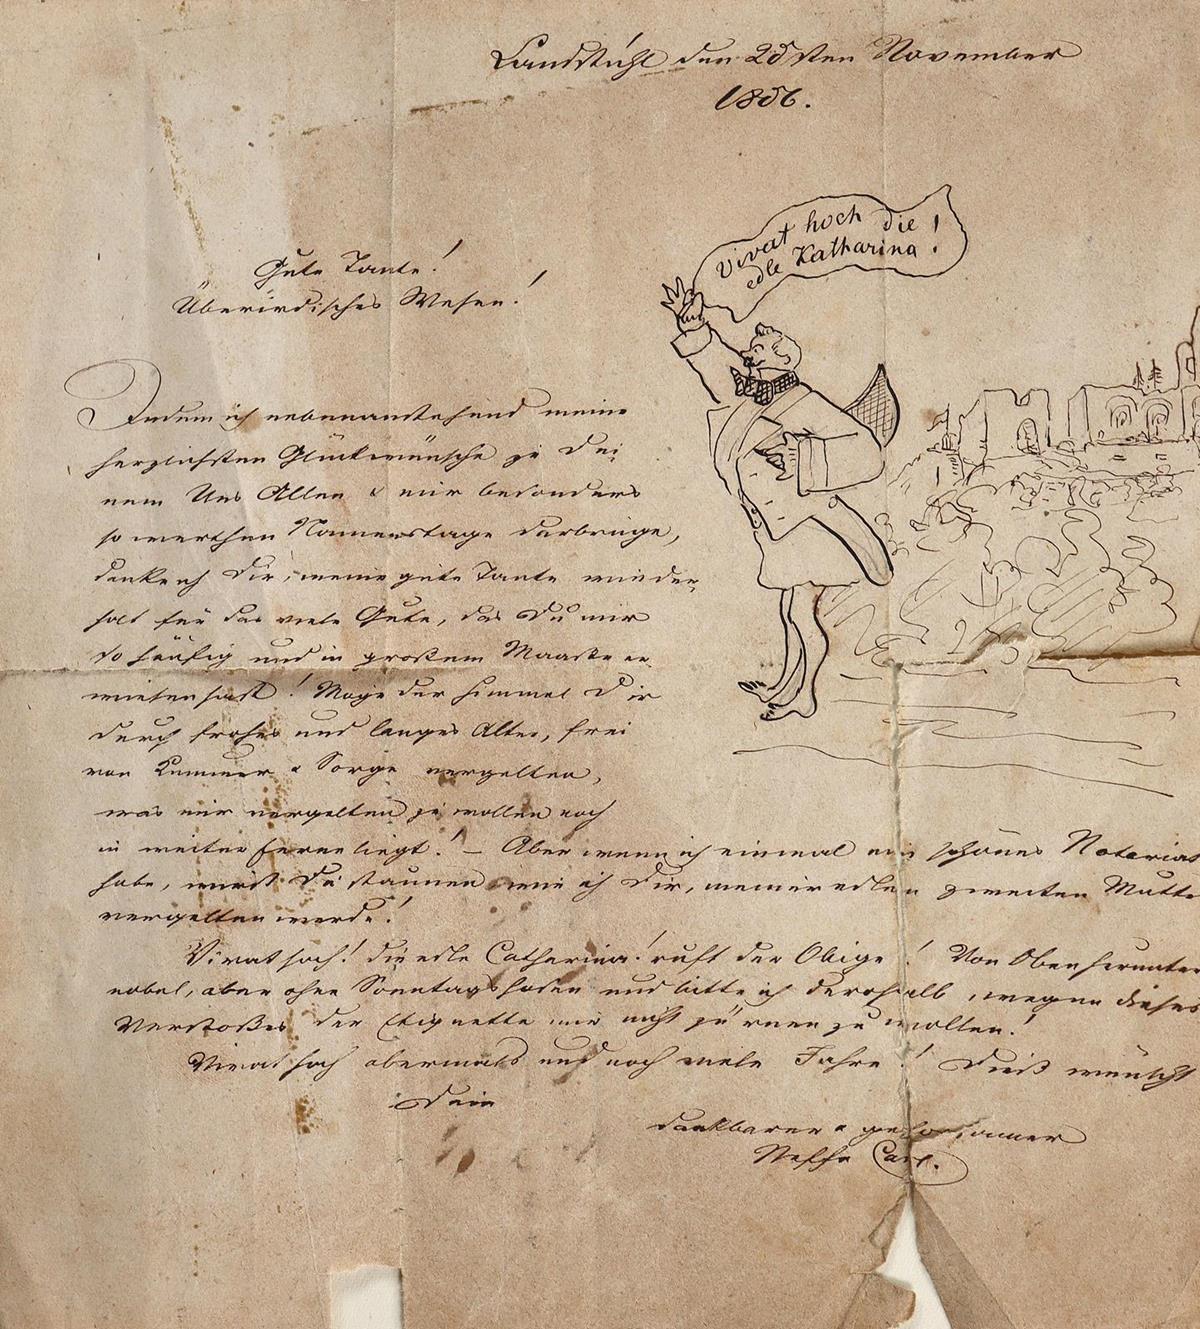 Landstuhl den 25sten November
1856.
Vivat hoch die
edle Katharina!
Gute Tante!
Überirdisches Wesen!
Indem ich nebenanstehend meine
herzlichsten Glückwünsche zu Dei
nem Uns Allen & mir besonders
so werthen Namenstage darbringe,
danke ich Dir, meine gute Tante wieder
holt für das viele Gute, das Du mir
so häufig und in großem Maaße er
wiesen hast! Möge der Himmel Dir
durch frohes und langes Alter, frei
von Kummer & Sorge vergelten,
was mir vergelten zu wollen noch
in weiter Ferne liegt! – Aber wenn ich einmal ein schönes Notariat
habe, wirst Du staunen wie ich Dir, meiner edlen zweiten Mutte
vergelten werde!
Vivat hoch! die edle Catharina! ruft der Obige! Von Oben herunter
nobel, aber ohne Sonntagshosen und bitte ich derohalb, wegen dieses
Verstoßes der Etiquette mir nicht zürnen zu wollen!
Vivat hoch abermals und noch viele Jahre! Dieß wünscht
Dein
dankbarer & gehorsamer
Neffe Carl.